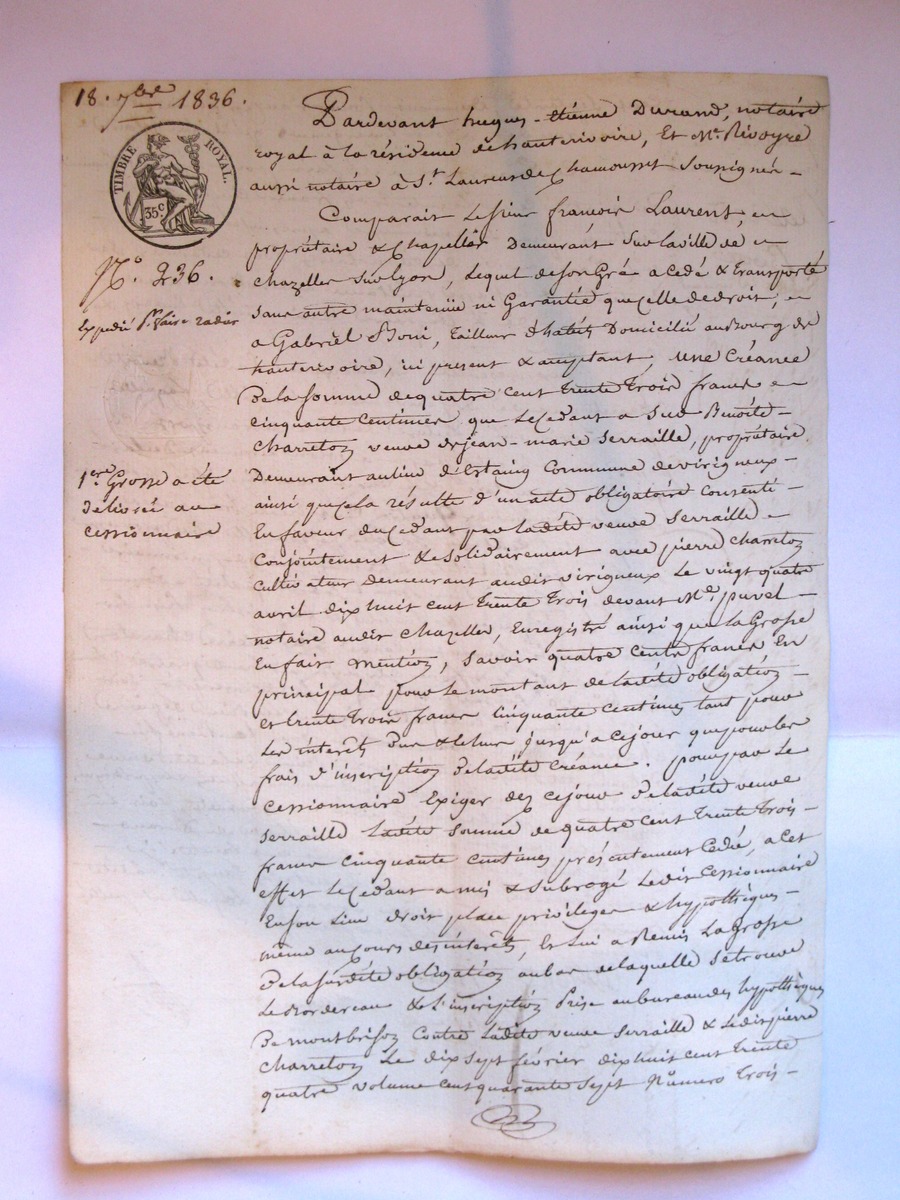 18. 7bre 1836.
TIMBRE ROYAL.
35c.
N° 236.
Expédié pr. faire radier
1ere Grosse a été
délivrée au
cessionnaire
Pardevant hugues-étienne Durand, notaire
royal à la résidence de hauterivoire, Et Me. Rivoyre
aussi notaire à St. Laurent de Chamousset Soussignés -
Comparait Le Sieur françois Laurent,
propriétaire & Chapellier Demeurant Sur la ville de
chazelles sur Lyon, Lequel de son Gré a cedé & transporté
sans autre maintenüe ni Garantie que celle de droit,
a Gabriël Boni, tailleur d'habits Domicilié au Bourg de
hauterivoire, ici present & acceptant, Une Créance
De la Somme de quatre cent trente trois francs
cinquante centimes que Le Cedant a Sur Benoîte
charretoz veuve de jean-marie Serraille, propriétaire
Demeurant au lieu d'Estaing Commune de virigneux -
ainsi que cela résulte d'un acte obligatoire Consenti
En faveur du Cedant par la dite veuve Serraille
conjointement & solidairement avec pierre charretoz
cultivateur demeurant audit virigneux Le vingt quatre
avril dix huit cent trente trois devant Me. juvel -
notaire audit chazelles, Enregistré ainsi que la Grosse
En fait mention, Savoir quatre cents francs En
principal pour Le montant de la dite obligation -
et trente trois francs cinquante centimes tant pour
Les interêts Dus & échus jusqu'a ce jour que pour les
frais d'inscription De la dite Créance. pour par Le
Cessionnaire Exiger dez ce jour De ladite veuve
Serraille Ladite Somme de quatre cent trente trois -
francs cinquante centimes présentement Cedée, a cet
effet Le Cedant a mis & Subrogé Ledit Cessionnaire
En son Lieu droit place privileges & hypothèques -
même au cours des interêts, Et Lui a Remis La Grosse
De la Susdite obligation au bas de laquelle Se trouve
Le Bordereau & L'inscription Prise au bureau des hypothèques
De montbrison Contre Ladite veuve Serraille & Ledit pierre
charretoz Le dix sept février dix huit cent trente
quatre volume cent quarante Sept Numero trois -